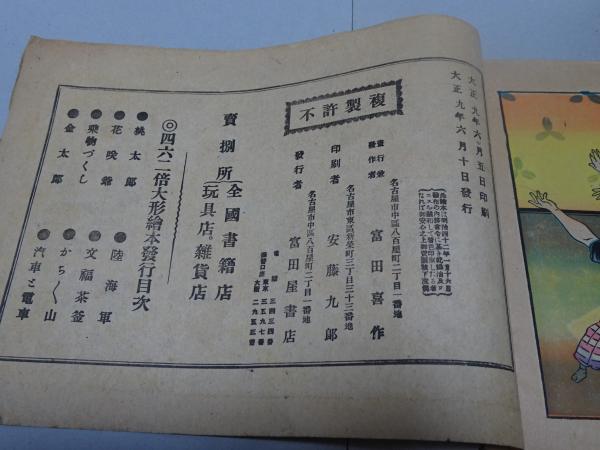 大正九年六月五日印刷
大正九年六月十日發行
不許製複
名古屋市中區八百屋町二丁目一番地
發行兼
著作者
富田喜作
名古屋市東區新榮町三丁目三十三番地
印刷者
安藤九郎
名古屋市中區八百屋町二丁目一番地
發行者
富田屋書店
賣捌所(全國書籍店
玩具店。雜貨店
◎四六二倍大形繪本發行目次
桃太郎
陸海軍
花咲爺
文福茶釜
乘物づくし
かち〱山
金太郎
汽車と電車